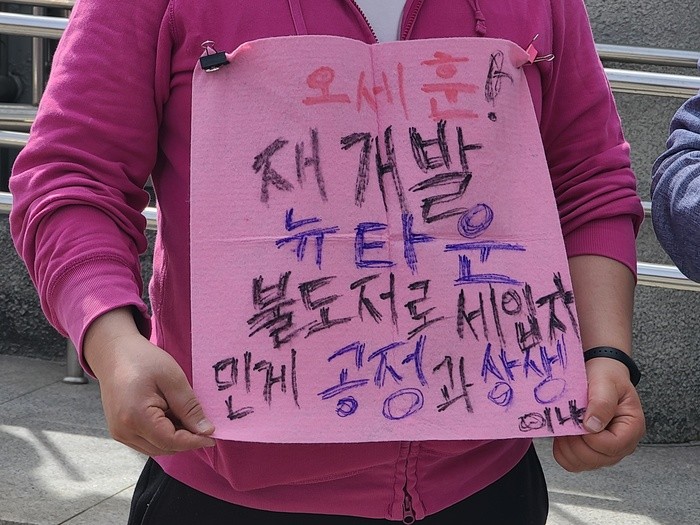 오세훈!
재개발
뉴타운
불도저로 세입자
민게 공정과 상생
이냐